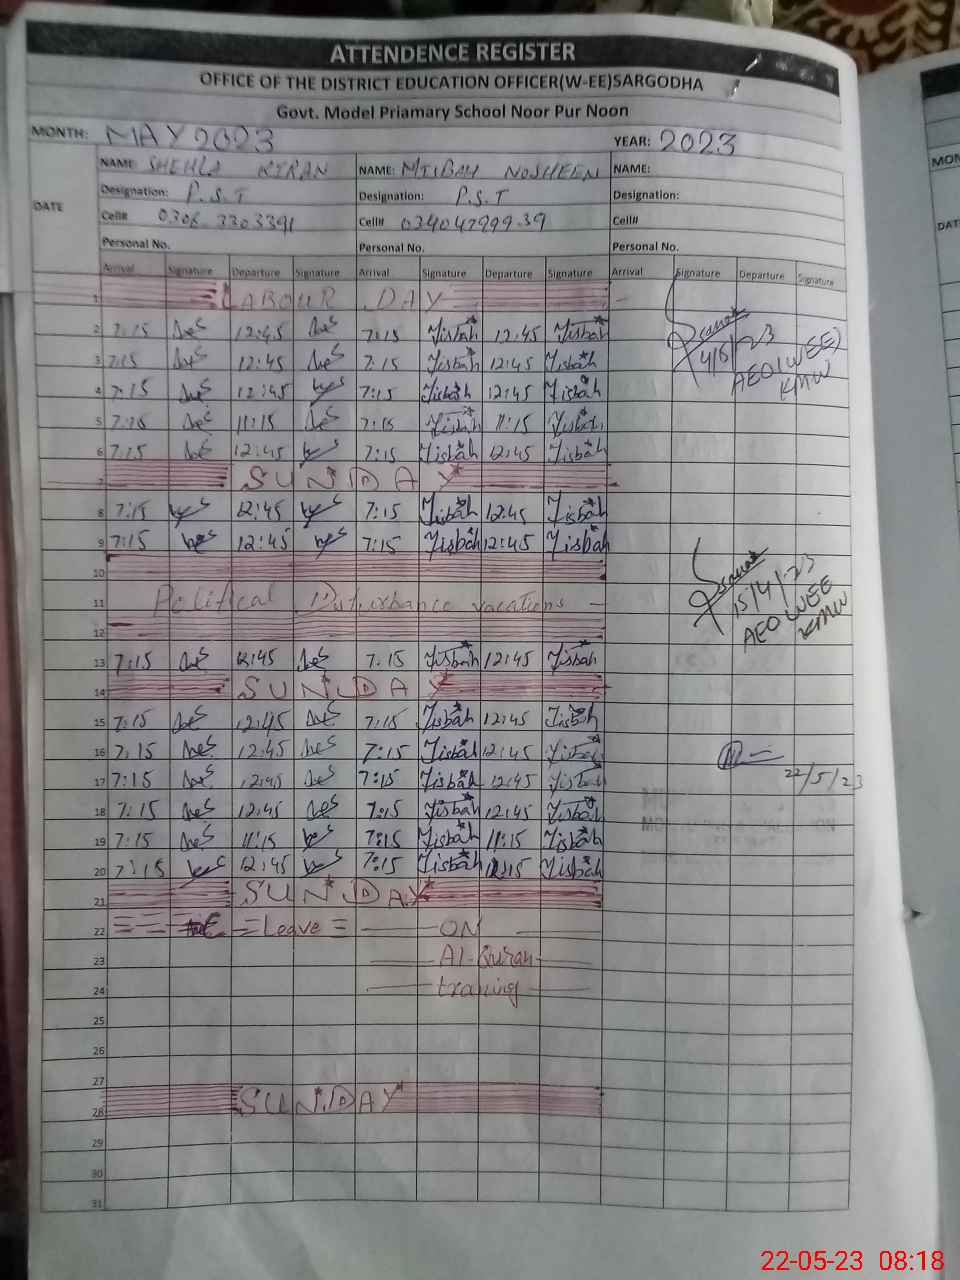 ATTENDENCE REGISTER
OFFICE OF THE DISTRICT EDUCATION OFFICER(W-EE)SARGODHA
Govt. Model Priamary School Noor Pur Noon
MONTH: MAY 2023 YEAR: 2023
NAME: SHEHLA KIRAN NAME: MISBAH NOSHEEN NAME:
DATE Designation: P.S.T Designation: P.S.T Designation:
Cell# 0306-3303391 Cell# 034047999-39 Cell#
Personal No. Personal No. Personal No.
Arrival Signature Departure Signature Arrival Signature Departure Signature Arrival Signature Departure Signature
1 LABOUR DAY
2 7:15 12:45 7:15 Misbah 12:45 Misbah
3 7:15 12:45 7:15 Misbah 12:45 Misbah
4/5/23
AEO(WEE)
KMW
4 7:15 12:45 7:15 Misbah 12:45 Misbah
5 7:15 11:15 7:15 Misbah 11:15 Misbah
6 7:15 12:45 7:15 Misbah 12:45 Misbah
7 SUNDAY
8 7:15 12:45 7:15 Misbah 12:45 Misbah
9 7:15 12:45 7:15 Misbah 12:45 Misbah
10
11 Political Disturbance vacations
15/4/23
AEO WEE
KMW
12
13 7:15 12:45 7:15 Misbah 12:45 Misbah
14 SUNDAY
15 7:15 12:45 7:15 Misbah 12:45 Misbah
16 7:15 12:45 7:15 Misbah 12:45 Misbah
17 7:15 12:45 7:15 Misbah 12:45 Misbah
22/5/23
18 7:15 12:45 7:15 Misbah 12:45 Misbah
19 7:15 11:15 7:15 Misbah 11:15 Misbah
20 7:15 12:45 7:15 Misbah Misbah
21 SUNDAY
22 Leave ON
23 Al-Quran
24 training
25
26
27
28 SUNDAY
29
30
31
MON
DATE
22-05-23 08:18